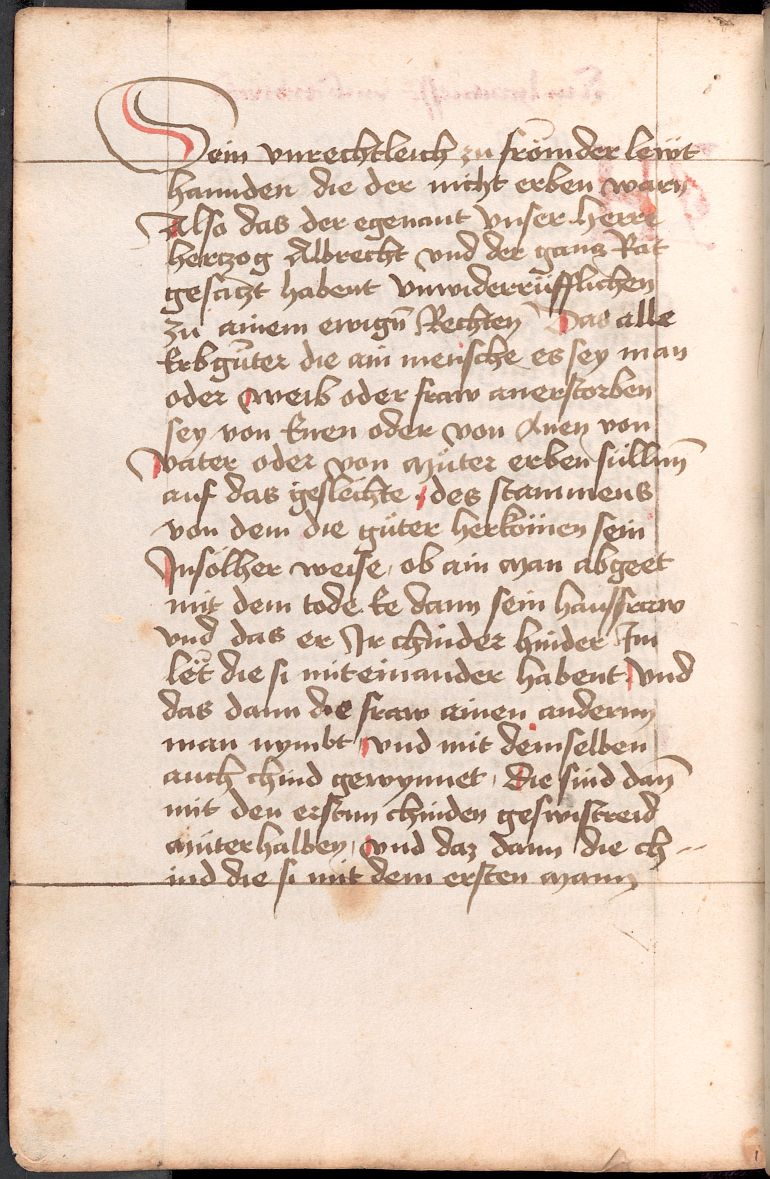 Sein vnrechtleich zu frömder lewt
hannden die der nicht erben warn
Also das der egenant vnser herre
hertzog Albrecht vnd der gancz Rat
gesaczt habent vnwiderrüfflichen
zu ainem ewign̄ Rechten Das alle
Erbgüter die ain mensche es sey man
oder weib oder fraw anerstorben
sey von Enen oder von Anen von
vater oder von müter erben süllnn̄
auf das geslechte des stammens
von dem die güter herkömen sein
Insolher weise, ob ain man abgeet
mit dem tode Ee dann sein hausfraw
vnd das er Ir chinder hinder Im
lët die si miteinander habent vnd
das dann die fraw ainen andernn
man nymbt vnd mit demselben
auch chind gewynnet, Die sind dan̄
mit den erstnn chinden geswistreid
müterhalben, vnd daz dann die ch--
ind die si mit dem ersten mann